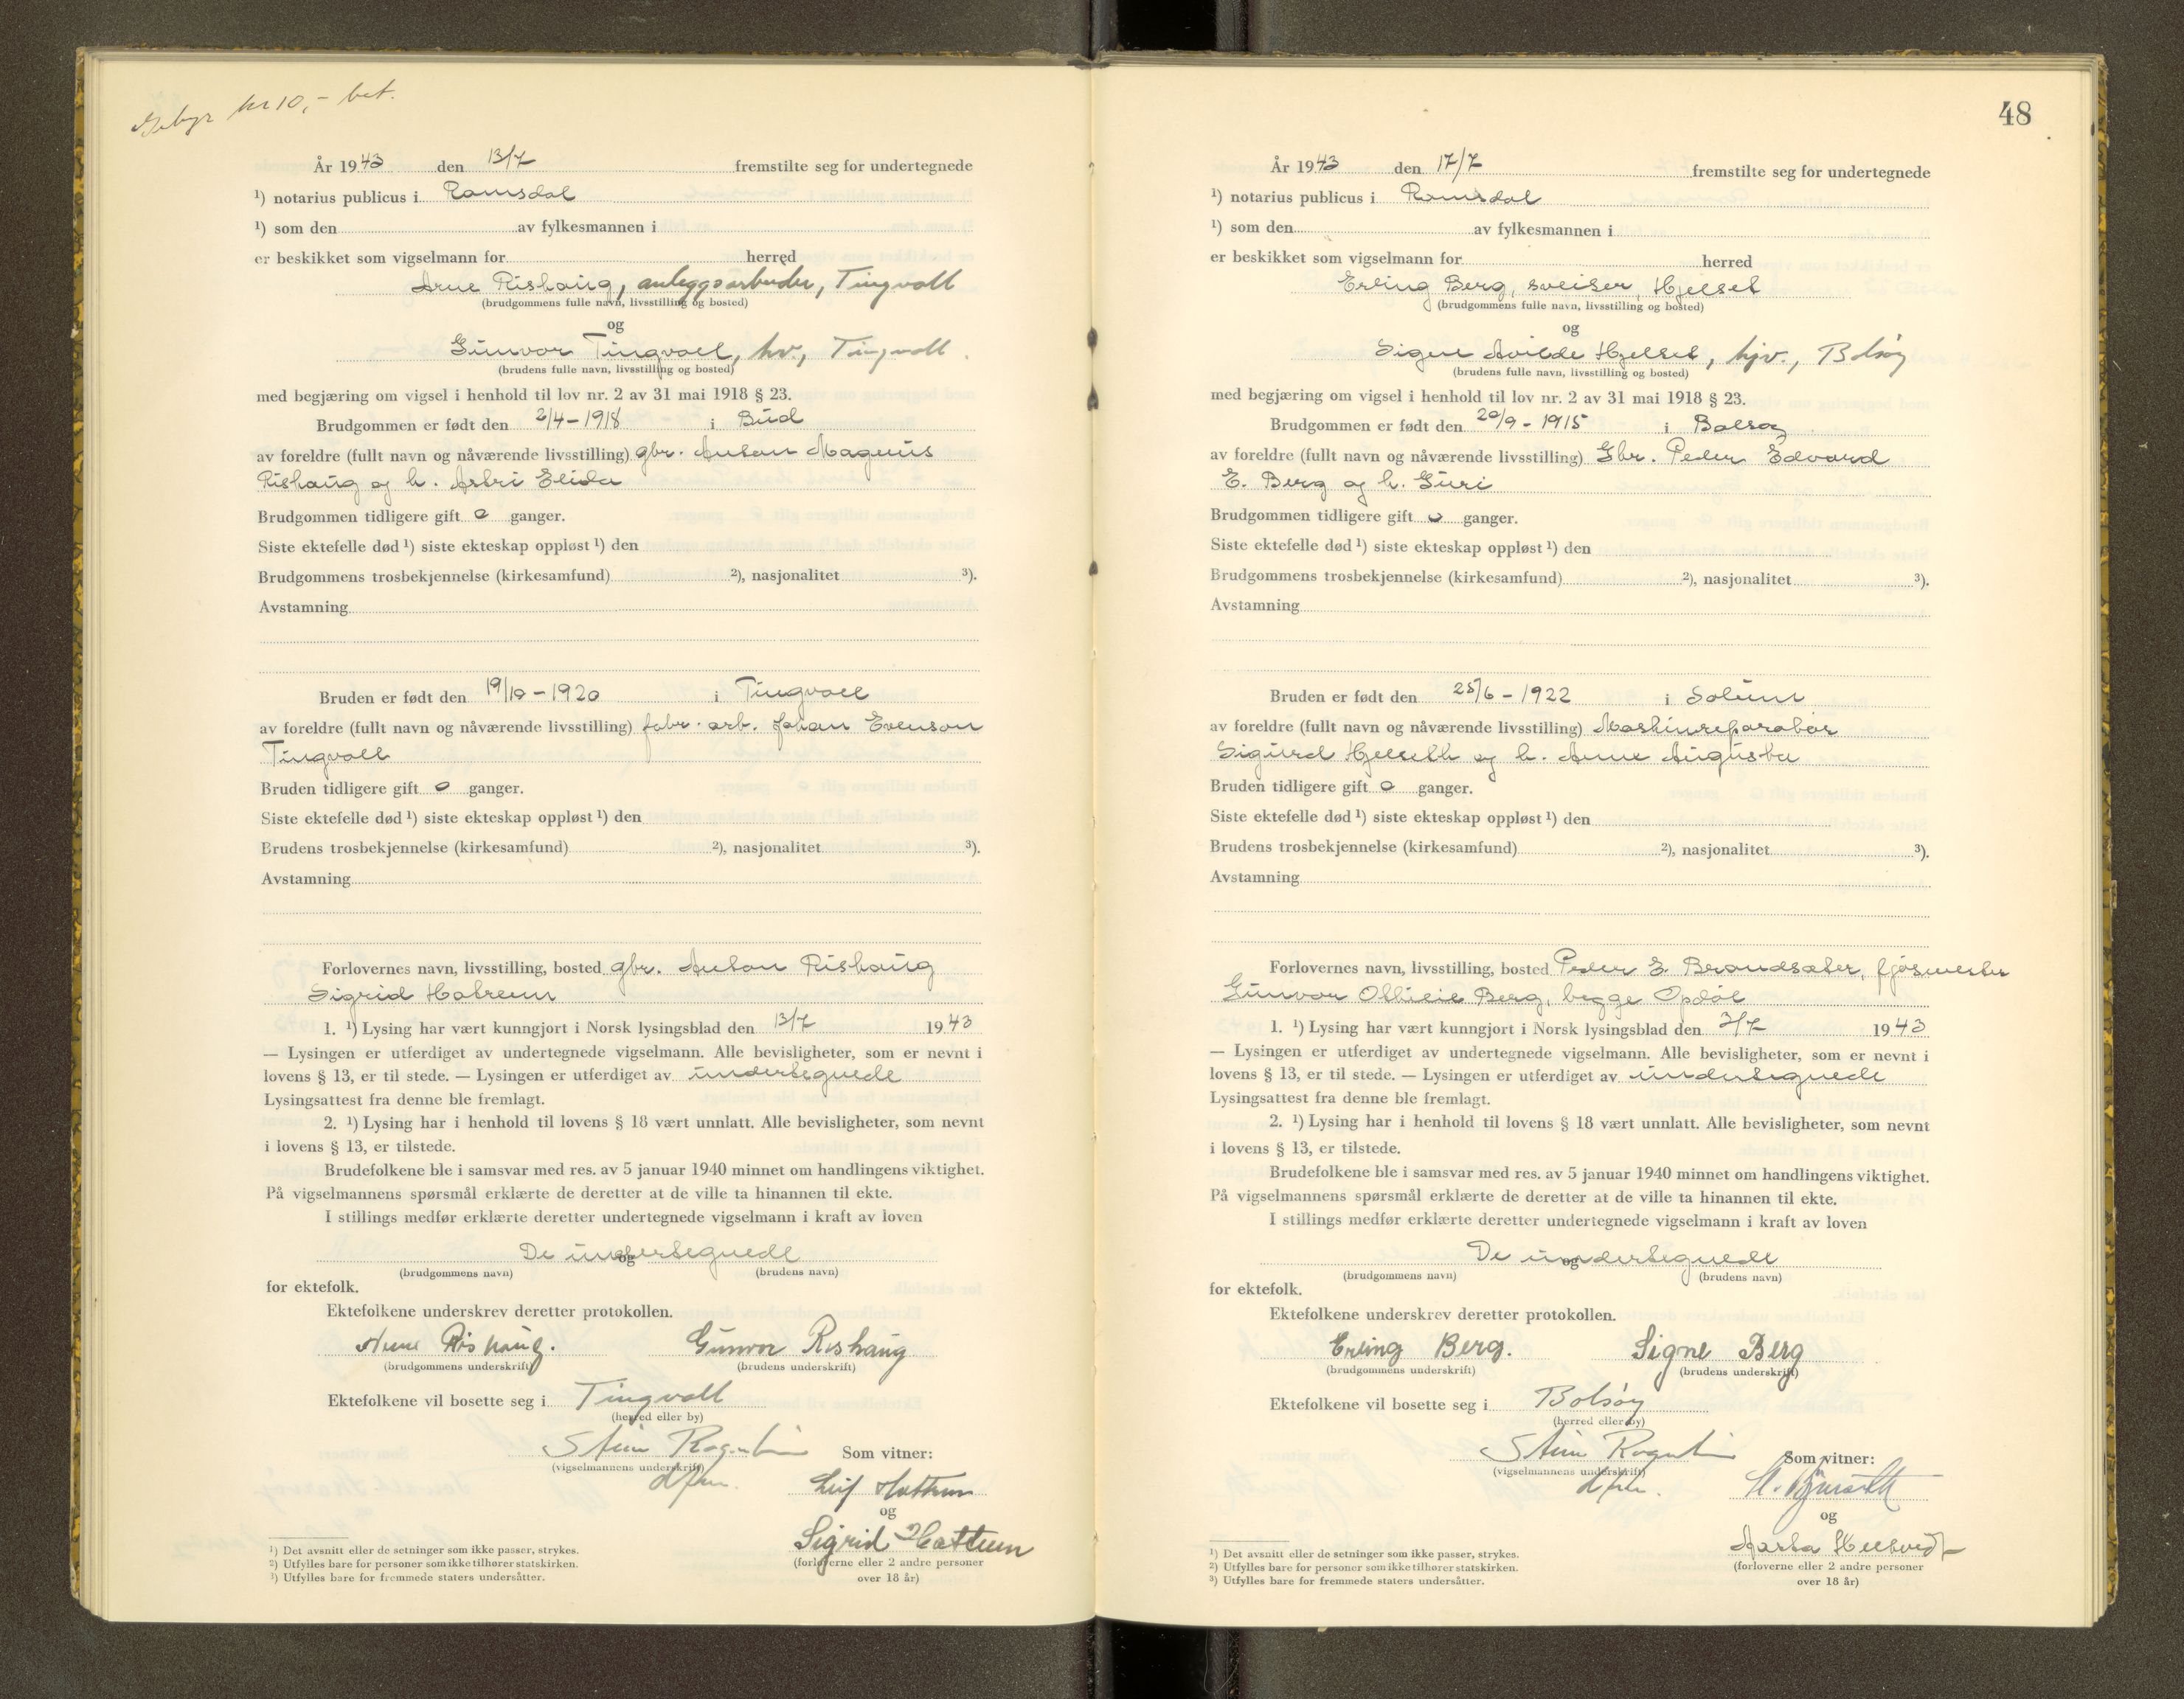 Gebyr kr 10,- bet.
År 1943 den 13/7 fremstilte seg for undertegnede
¹) notarius publicus i Romsdal
¹) som den av fylkesmannen i
er beskikket som vigselmann for herred
Arne Rishaug, anleggsarbeider, Tingvoll
(brudgommens fulle navn, livsstilling og bosted)
og
Gunvor Tingvoll, hv., Tingvoll.
(brudens fulle navn, livsstilling og bosted)
med begjæring om vigsel i henhold til lov nr. 2 av 31 mai 1918 § 23.
Brudgommen er født den 2/4-1918 i Bud
av foreldre (fullt navn og nåværende livsstilling) gbr. Anton Magnus
Rishaug og h. Astri Elida
Brudgommen tidligere gift 0 ganger.
Siste ektefelle død ¹) siste ekteskap oppløst ¹) den
Brudgommens trosbekjennelse (kirkesamfund) ²), nasjonalitet ³).
Avstamning
Bruden er født den 19/10-1920 i Tingvoll
av foreldre (fullt navn og nåværende livsstilling) fabr. arb. Johan Evenson
Tingvoll
Bruden tidligere gift 0 ganger.
Siste ektefelle død ¹) siste ekteskap oppløst ¹) den
Brudens trosbekjennelse (kirkesamfund) ²), nasjonalitet ³).
Avstamning
Forlovernes navn, livsstilling, bosted gbr. Anton Rishaug
Sigrid Hatrem
1. ¹) Lysing har vært kunngjort i Norsk lysingsblad den 13/7 1943
— Lysingen er utferdiget av undertegnede vigselmann. Alle bevisligheter, som er nevnt i
lovens § 13, er til stede. — Lysingen er utferdiget av undertegnede
Lysingsattest fra denne ble fremlagt.
2. ¹) Lysing har i henhold til lovens § 18 vært unnlatt. Alle bevisligheter, som nevnt
i lovens § 13, er tilstede.
Brudefolkene ble i samsvar med res. av 5 januar 1940 minnet om handlingens viktighet.
På vigselmannens spørsmål erklærte de deretter at de ville ta hinannen til ekte.
I stillings medfør erklærte deretter undertegnede vigselmann i kraft av loven
De undertegnede
og
(brudgommens navn) (brudens navn)
for ektefolk.
Ektefolkene underskrev deretter protokollen.
Arne Rishaug. Gunvor Rishaug
(brudgommens underskrift) (brudens underskrift)
Ektefolkene vil bosette seg i Tingvoll
(herred eller by)
Stein Rognlien Som vitner:
(vigselmannens underskrift)
dfm.
Leif Hattrem
og
Sigrid Hattrem
(forloverne eller 2 andre personer
over 18 år)
¹) Det avsnitt eller de setninger som ikke passer, strykes.
²) Utfylles bare for personer som ikke tilhører statskirken.
³) Utfylles bare for fremmede staters undersåtter.
48
År 1943 den 17/7 fremstilte seg for undertegnede
¹) notarius publicus i Romsdal
¹) som den av fylkesmannen i
er beskikket som vigselmann for herred
Erling Berg, sveiser, Hjelset
(brudgommens fulle navn, livsstilling og bosted)
og
Signe Avilde Hjelset, hjv., Bolsøy
(brudens fulle navn, livsstilling og bosted)
med begjæring om vigsel i henhold til lov nr. 2 av 31 mai 1918 § 23.
Brudgommen er født den 20/9-1915 i Bolsøy
av foreldre (fullt navn og nåværende livsstilling) Gbr. Peder Edvard
E. Berg og h. Guri
Brudgommen tidligere gift 0 ganger.
Siste ektefelle død ¹) siste ekteskap oppløst ¹) den
Brudgommens trosbekjennelse (kirkesamfund) ²), nasjonalitet ³).
Avstamning
Bruden er født den 25/6-1922 i Solum
av foreldre (fullt navn og nåværende livsstilling) Maskinreparatør
Sigurd Hjelseth og h. Anne Augusta
Bruden tidligere gift 0 ganger.
Siste ektefelle død ¹) siste ekteskap oppløst ¹) den
Brudens trosbekjennelse (kirkesamfund) ²), nasjonalitet ³).
Avstamning
Forlovernes navn, livsstilling, bosted Peder E Brandsæter, fjøsmester
Gunvor Berg, begge Opdøl
1. ¹) Lysing har vært kunngjort i Norsk lysingsblad den 3/7 1943
— Lysingen er utferdiget av undertegnede vigselmann. Alle bevisligheter, som er nevnt i
lovens § 13, er til stede. — Lysingen er utferdiget av undertegnede
Lysingsattest fra denne ble fremlagt.
2. ¹) Lysing har i henhold til lovens § 18 vært unnlatt. Alle bevisligheter, som nevnt
i lovens § 13, er tilstede.
Brudefolkene ble i samsvar med res. av 5 januar 1940 minnet om handlingens viktighet.
På vigselmannens spørsmål erklærte de deretter at de ville ta hinannen til ekte.
I stillings medfør erklærte deretter undertegnede vigselmann i kraft av loven
De undertegnede
og
(brudgommens navn) (brudens navn)
for ektefolk.
Ektefolkene underskrev deretter protokollen.
Erling Berg. Signe Berg
(brudgommens underskrift) (brudens underskrift)
Ektefolkene vil bosette seg i Bolsøy
(herred eller by)
Stein Rognlien Som vitner:
(vigselmannens underskrift)
dfm.
og
Aasta
(forloverne eller 2 andre personer
over 18 år)
¹) Det avsnitt eller de setninger som ikke passer, strykes.
²) Utfylles bare for personer som ikke tilhører statskirken.
³) Utfylles bare for fremmede staters undersåtter.